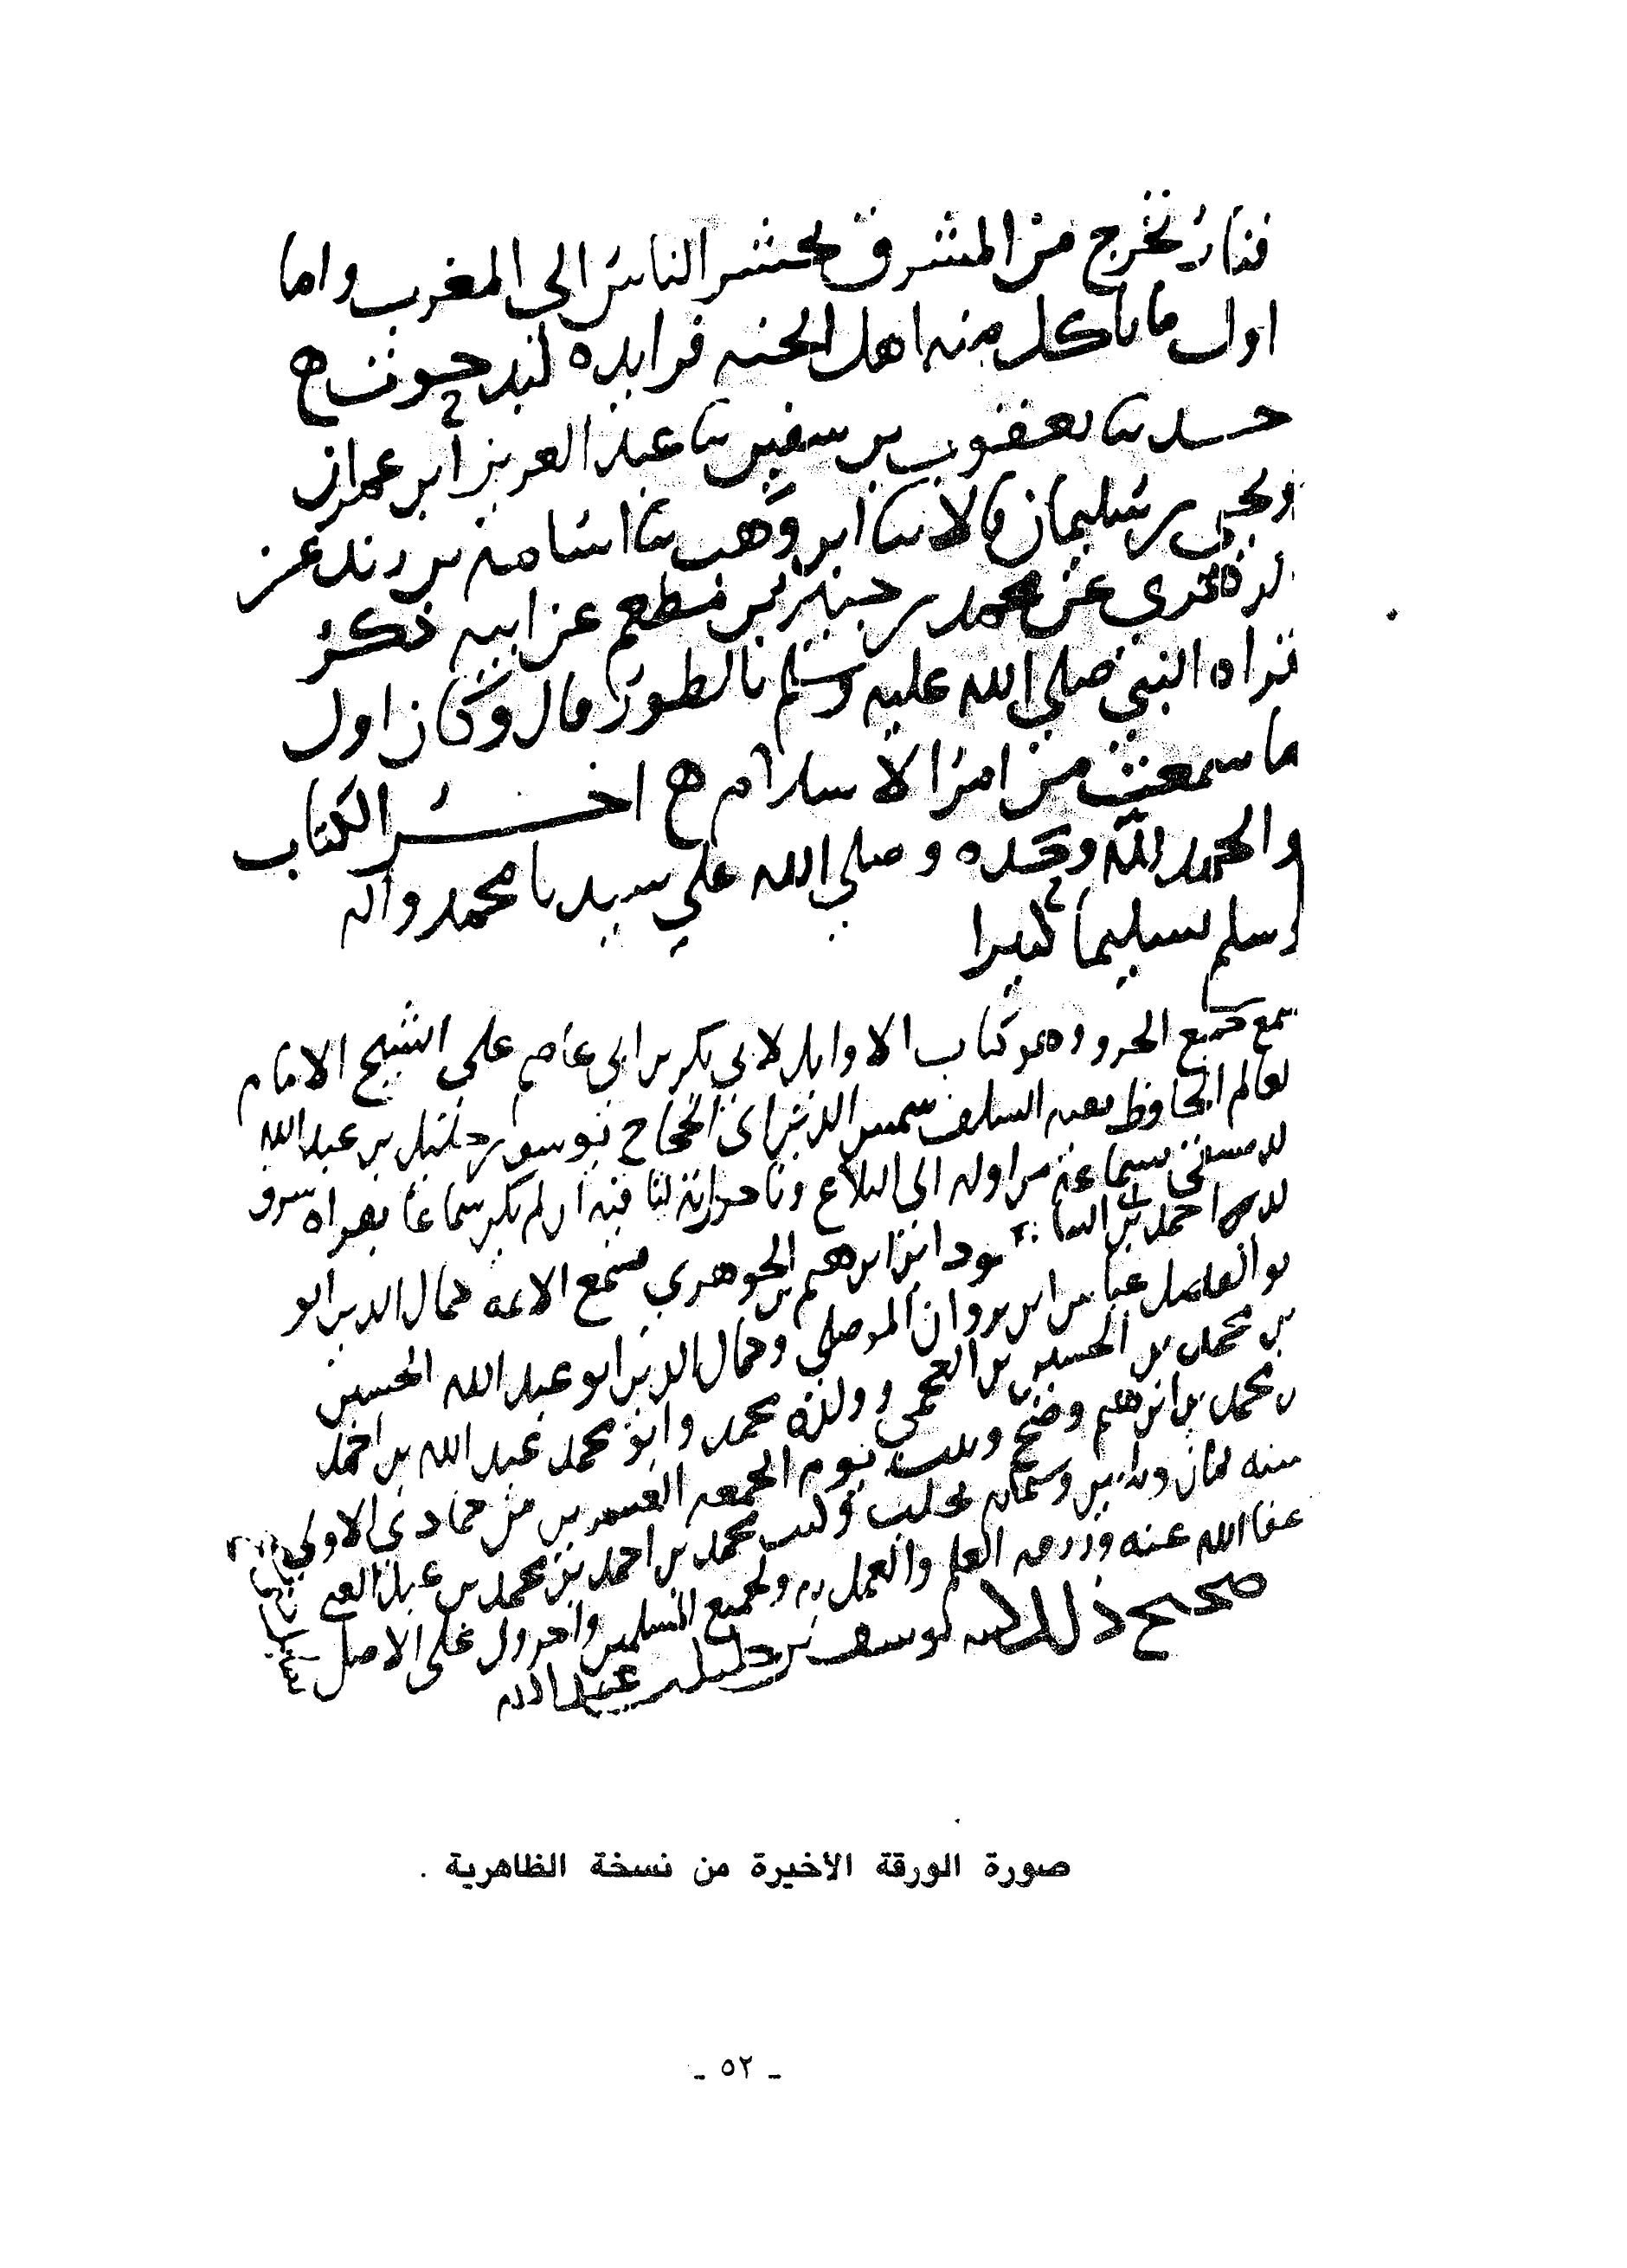 فنار تخرج من المشرق تحشر الناس الى المغرب واما
اول ما ياكل منه اهل الجنه فزايده كبد حوت
حدثنا يعقوب بن سفين ثنا عبد العزيز ابن عمران
ويحيى بن سليمان قالا ثنا ابن وهب ثنا اسامه بن زيد عن
الزهري عن محمد بن جبير بن مطعم عن ابيه ذكر
قراه النبي صلى الله عليه وسلم بالطور قال وكان اول
ما سمعت من امر الاسلام اخر الكتاب
والحمد لله وحده وصلى الله علي سيدنا محمد واله
وسلم تسليما كثيرا
سمع جميع الجزو وهو كتاب الاوايل لابي بكر بن ابي عاصم علي الشيخ الامام
لعالم الحافظ بقيه السلف شمس الدين ابي الحجاج يوسف بن خليل بن عبد الله
لدمشقي سماعه من اوله الى البلاغ وباجازته لنا فيه ان لم يكن سماعا بقراه
احمد بن ابن ابرهيم بن الجوهري سمع الايمه جمال الدين ابو
بو الفضل عباس ابن بزوان الموصلي وجمال الدين ابو عبد الله الحسين
بن محمد بن الحسين بن العجمي وولده محمد وابو محمد عبد الله بن احمد
بن محمد بن ابرهيم وصح وثبت يوم الجمعه العشرين من جمادى الاولي
سنه ثمان وثلاثين وستمايه بحلب وكتب محمد بن احمد بن محمد بن عبد
عفا الله عنه ورزقه العلم والعمل به ولجميع المسلمين علي الاصل
صحيح ذلك كتبه يوسف بن خليل بن عبد الله
صورة الورقة الأخيرة من نسخة الظاهرية .
- ٥٢ -